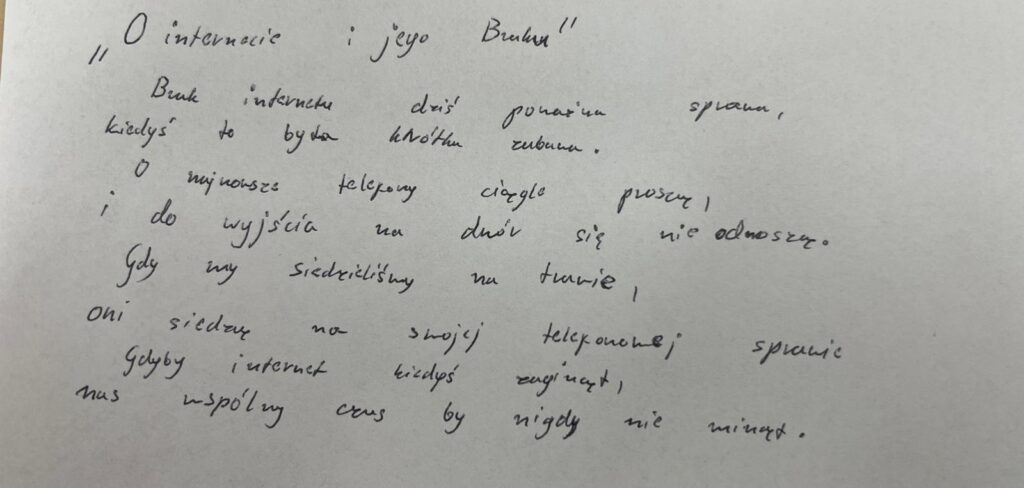 „O internecie i jego Braku"
Brak internetu dziś poważna sprawa,
kiedyś to była krótka zabawa.
O najnowsze telefony ciągle proszą,
i do wyjścia na dwór się nie odnoszą.
Gdy my siedzieliśmy na trawie,
oni siedzą na swojej telefonowej sprawie
Gdyby internet kiedyś zaginął,
nas wspólny czas by nigdy nie minął.